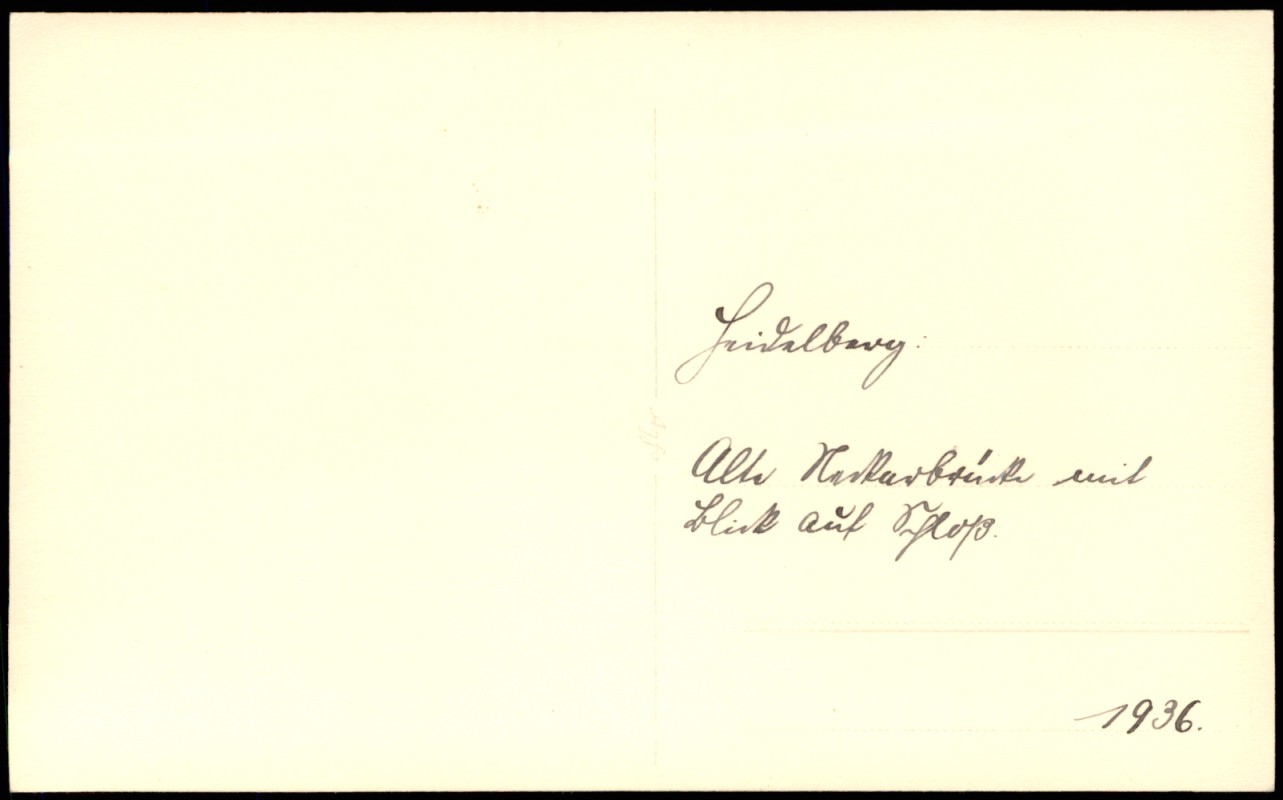 Heidelberg:
Alte Neckarbrücke mit
Blick auf Schloß.
1936.